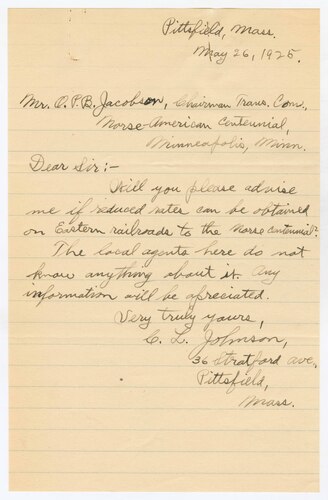 Pittsfield, Mass.
May 26, 1925.
Mr. O.P.B. Jacobson, Chairman Trans. Com.,
Norse-American Centennial,
Minneapolis, Minn.
Dear Sir:-
Will you please advise
me if reduced rates can be obtained
on Eastern railroads to the Norse Centennial?
The local agents here do not
know anything about it. Any
information will be apreciated.
Very truly yours,
C. L. Johnson,
36 Stratford Ave.,
Pittsfield,
Mass.